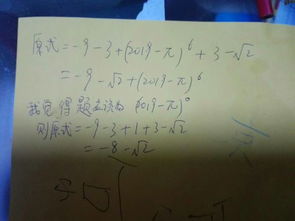 原式=-9-3+(2019-π)⁶+3-√2
=-9-√2+(2019-π)⁶
我觉得题应该为(2019-π)⁰
则原式=-9-3+1+3-√2
=-8-√2